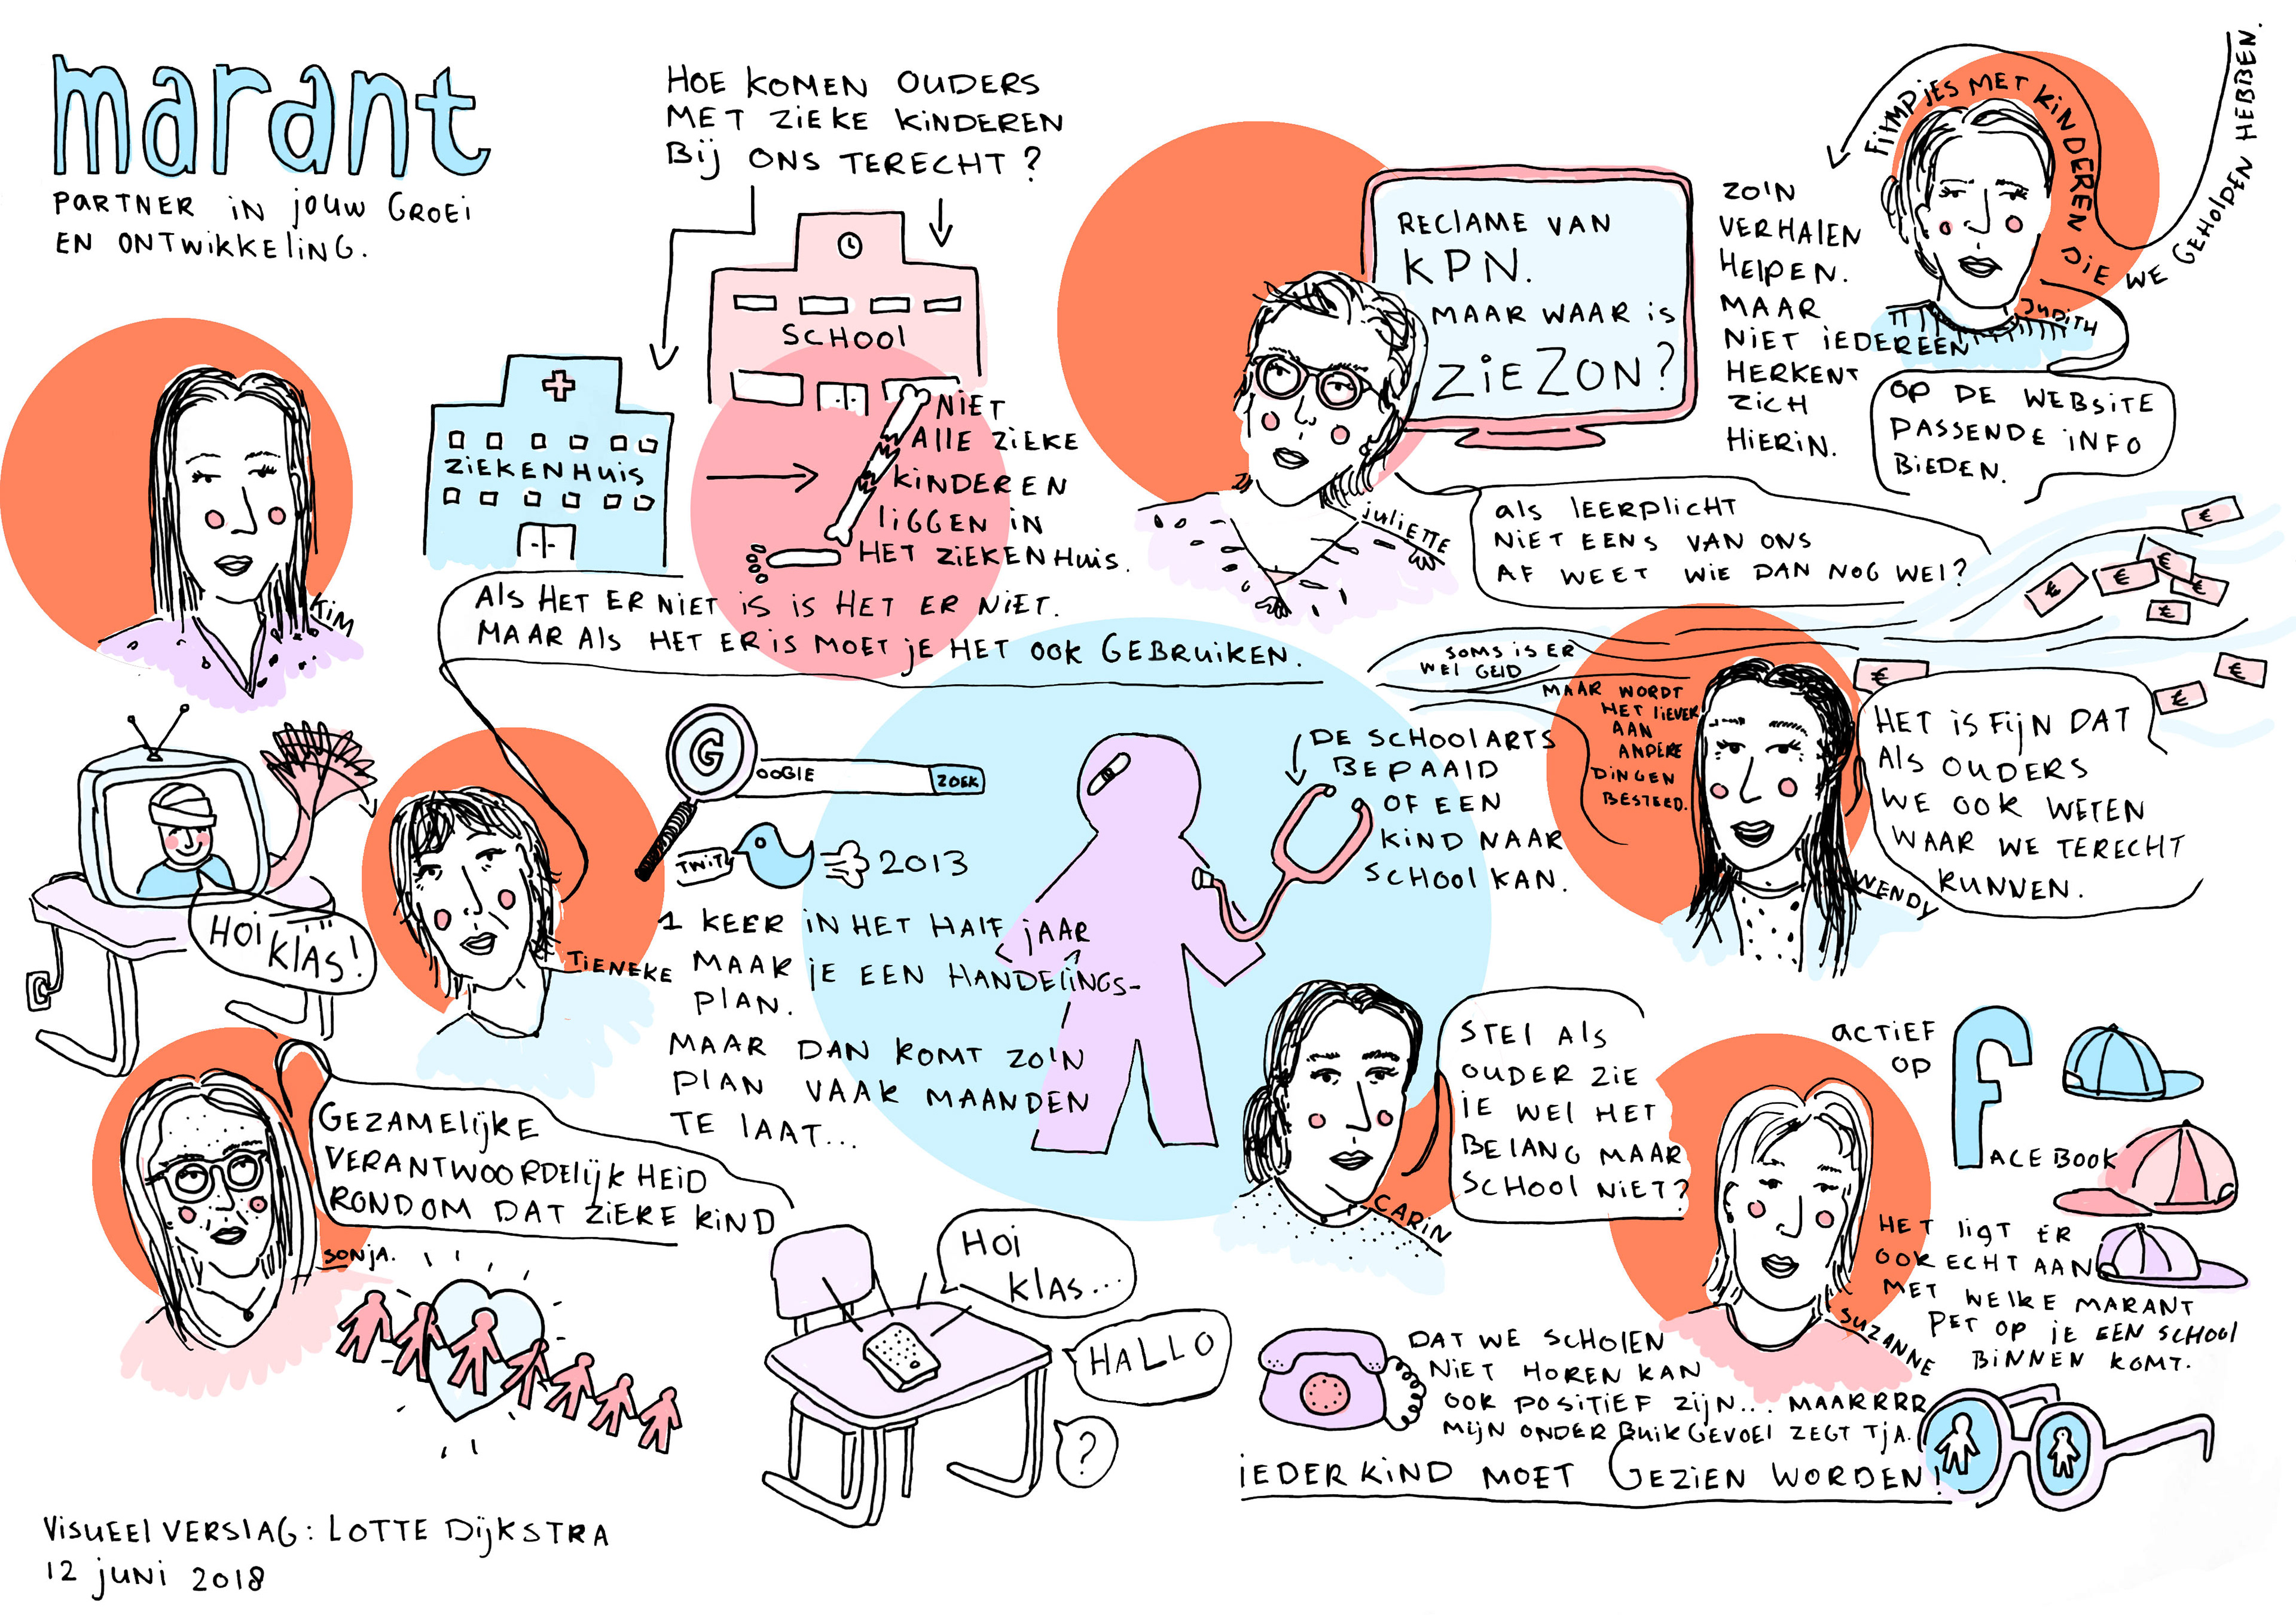 marant
PARTNER IN JOUW GROEI
EN ONTWIKKELING.
HOE KOMEN OUDERS
MET ZIEKE KINDEREN
BIJ ONS TERECHT?
SCHOOL
ZIEKENHUIS
NIET
ALLE ZIEKE
KINDEREN
LIGGEN IN
HET ZIEKENHUIS.
KIM
RECLAME VAN
KPN.
MAAR WAAR IS
ZIEZON?
JULIETTE
ZO'N
VERHALEN
HELPEN.
MAAR
NIET IEDEREEN
HERKENT
ZICH
HIERIN.
FILMPJES MET KINDEREN DIE WE GEHOLPEN HEBBEN.
JUDITH
OP DE WEBSITE
PASSENDE INFO
BIEDEN.
ALS LEERPLICHT
NIET EENS VAN ONS
AF WEET WIE DAN NOG WEL?
€
€
€
€
€
€
€
€
€
ALS HET ER NIET IS IS HET ER NIET.
MAAR ALS HET ER IS MOET JE HET OOK GEBRUIKEN.
SOMS IS ER
WEL GELD
MAAR WORDT
HET LIEVER
AAN
ANDERE
DINGEN
BESTEED.
HET IS FIJN DAT
ALS OUDERS
WE OOK WETEN
WAAR WE TERECHT
KUNNEN.
WENDY
HOI
KLAS!
TIENEKE
GOOGLE
ZOEK
TWIT
2013
1 KEER IN HET HALF JAAR
MAAK JE EEN HANDELINGS-
PLAN.
MAAR DAN KOMT ZO'N
PLAN VAAK MAANDEN
TE LAAT...
DE SCHOOLARTS
BEPAALD
OF EEN
KIND NAAR
SCHOOL KAN.
STEL ALS
OUDER ZIE
JE WEL HET
BELANG MAAR
SCHOOL NIET?
CARIN
ACTIEF
OP
FACEBOOK
HET LIGT ER
OOK ECHT AAN
MET WELKE MARANT
PET OP JE EEN SCHOOL
BINNEN KOMT.
SUZANNE
GEZAMELIJKE
VERANTWOORDELIJKHEID
RONDOM DAT ZIEKE KIND
SONJA.
HOI
KLAS...
HALLO
?
DAT WE SCHOLEN
NIET HOREN KAN
OOK POSITIEF ZIJN... MAARRRR
MIJN ONDERBUIKGEVOEL ZEGT TJA.
IEDER KIND MOET GEZIEN WORDEN!
VISUEEL VERSLAG: LOTTE DIJKSTRA
12 JUNI 2018